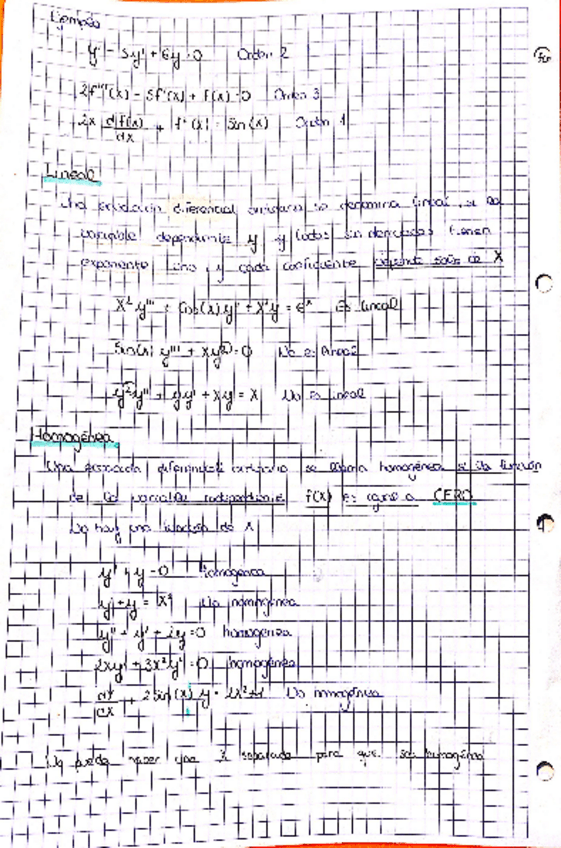 Ejemplo
y'' - 5y' + 6y = 0 Orden 2
2f'''(x) - 5f'(x) + f(x) = 0 Orden 3
2x df(x)/dx + f'(x) = Sin(x) Orden 1
Lineal
Una ecuación diferencial ordinaria se denomina lineal, si la
variable dependiente y y todas sin derivadas tienen
exponente Uno, y cada coeficiente depende solo de X
X² y''' + Cos(x) y' + X²y = eˣ Es lineal
Sin(x) y''' + xy² = 0 No es lineal
y²y'' + yy' + xy = X No es lineal
Homogénea
Una ecuación diferencial ordinaria se llama homogénea si la función
de la variable independiente f(x) es igual a CERO
No hay una función de X
y' + y = 0 homogenea
y' + y = X² No homogénea
y'' + y' + 2y = 0 homogenea
2xy' + 3x²y' = 0 homogénea
dy/dx + 2 Sin(x) y = 2x²+1 No homogénea
No puede haber una X separada para que sea homogénea